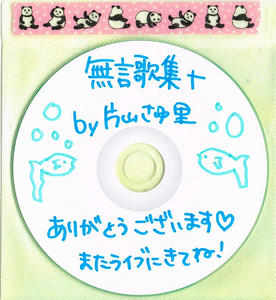 無言歌集+
by 片山さゆ里
ありがとうございます♡
またライブにきてね!